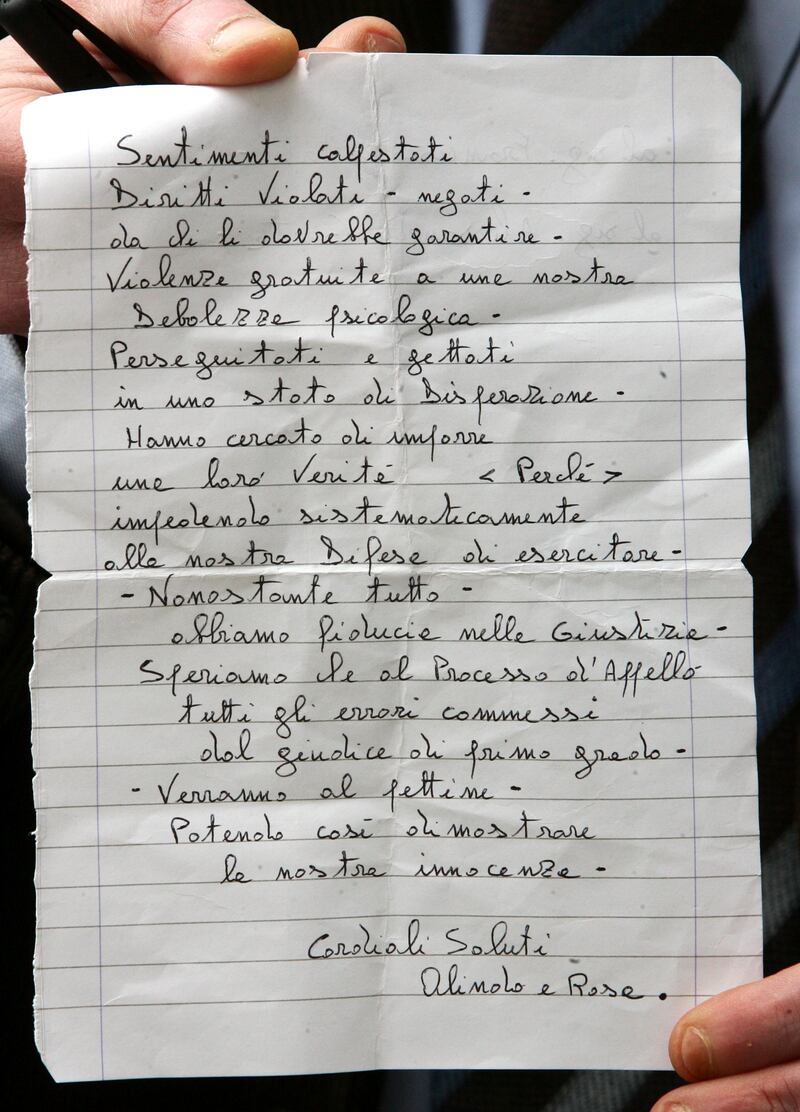 Sentimenti calpestati
Diritti Violati - negati -
da chi li dovrebbe garantire -
Violenze gratuite a una nostra
Debolezza psicologica -
Perseguitati e gettati
in uno stato di Disperazione -
Hanno cercato di imporre
una loro Verità < Perché >
impedendo sistematicamente
alla nostra Difesa di esercitare -
- Nonostante tutto -
abbiamo fiducia nella Giustizia -
Speriamo che al Processo d'Appello
tutti gli errori commessi
dal giudice di primo grado -
- Verranno al pettine -
Potendo così dimostrare
la nostra innocenza -
Cordiali Saluti
Olindo e Rosa.